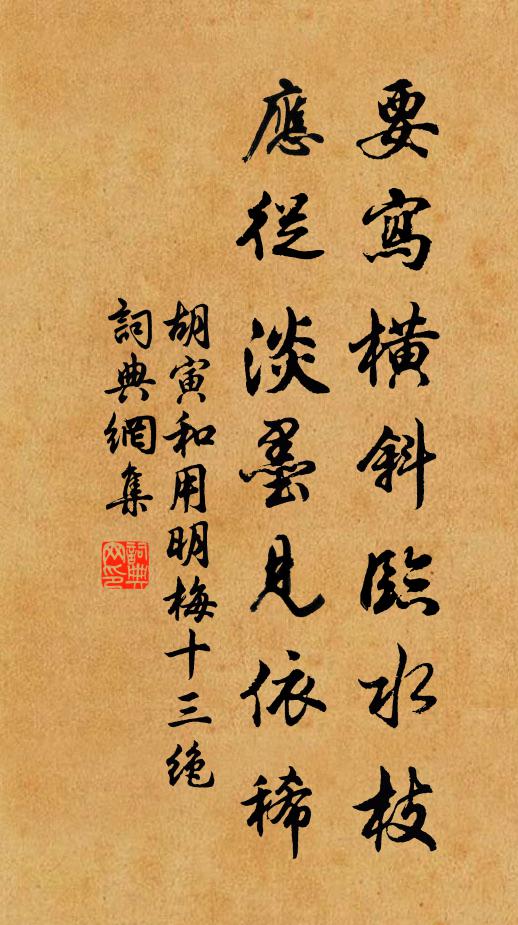 要寫橫斜臨水枝
應從淡墨見依稀
胡寅和用明梅十三绝
詞典網集
詞典网印